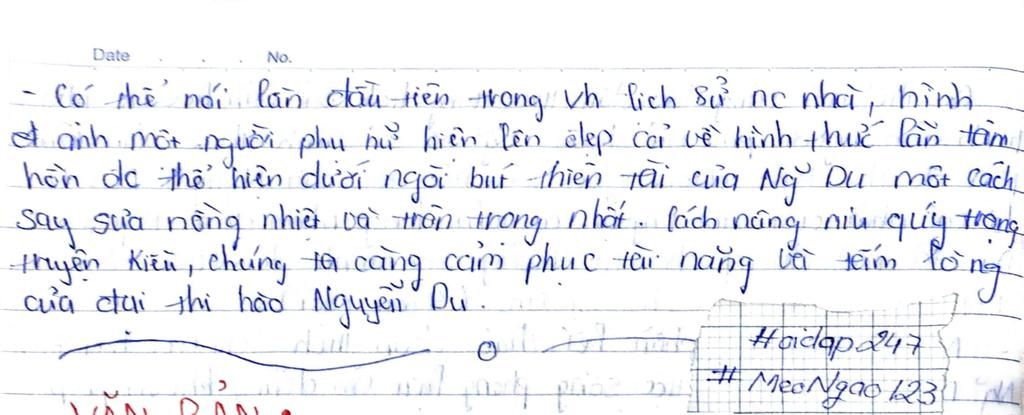 Date . . . No.
- Có thể nói lần đầu tiên trong vh lịch sử nc nhà, hình
ảnh một người phụ nữ hiện lên đẹp cả về hình thức lẫn tâm
hồn đc thể hiện dưới ngòi bút thiên tài của Ng~ Du một cách
say sưa nồng nhiệt và trân trọng nhất. Cách nâng niu quý trọng
truyện Kiều, chúng ta càng cảm phục tài năng và tấm lòng
của đại thi hào Nguyễn Du.
#aidap247
# MeoNgao123
VĂN BẢN: